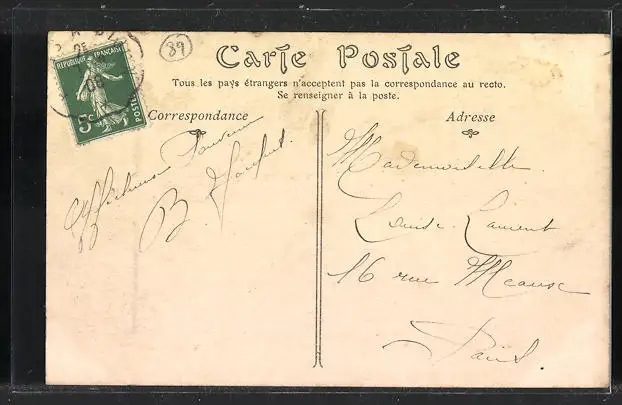 89
Carte Postale
Tous les pays étrangers n'acceptent pas la correspondance au recto.
Se renseigner à la poste.
Correspondance
Adresse
REPUBLIQUE FRANÇAISE
5c
POSTES
Affectueux Souvenir
B.
Mademoiselle
Louise Laurent
16 rue
Paris.